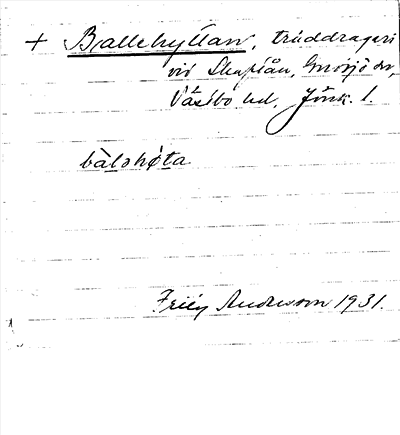 + Ballehyttan, tråddrageri
vid Skaplån, Gnosjö sn,
Västbo hd, Jönk. l.
bàlohøta
Frieg Andersson 1931.